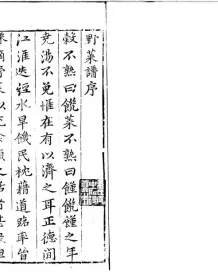 野菜譜序
穀不熟曰饑菜不熟曰饉饑饉之年
堯湯不免惟在有以濟之耳正德間
江淮迭經水旱饑民枕藉道路率皆